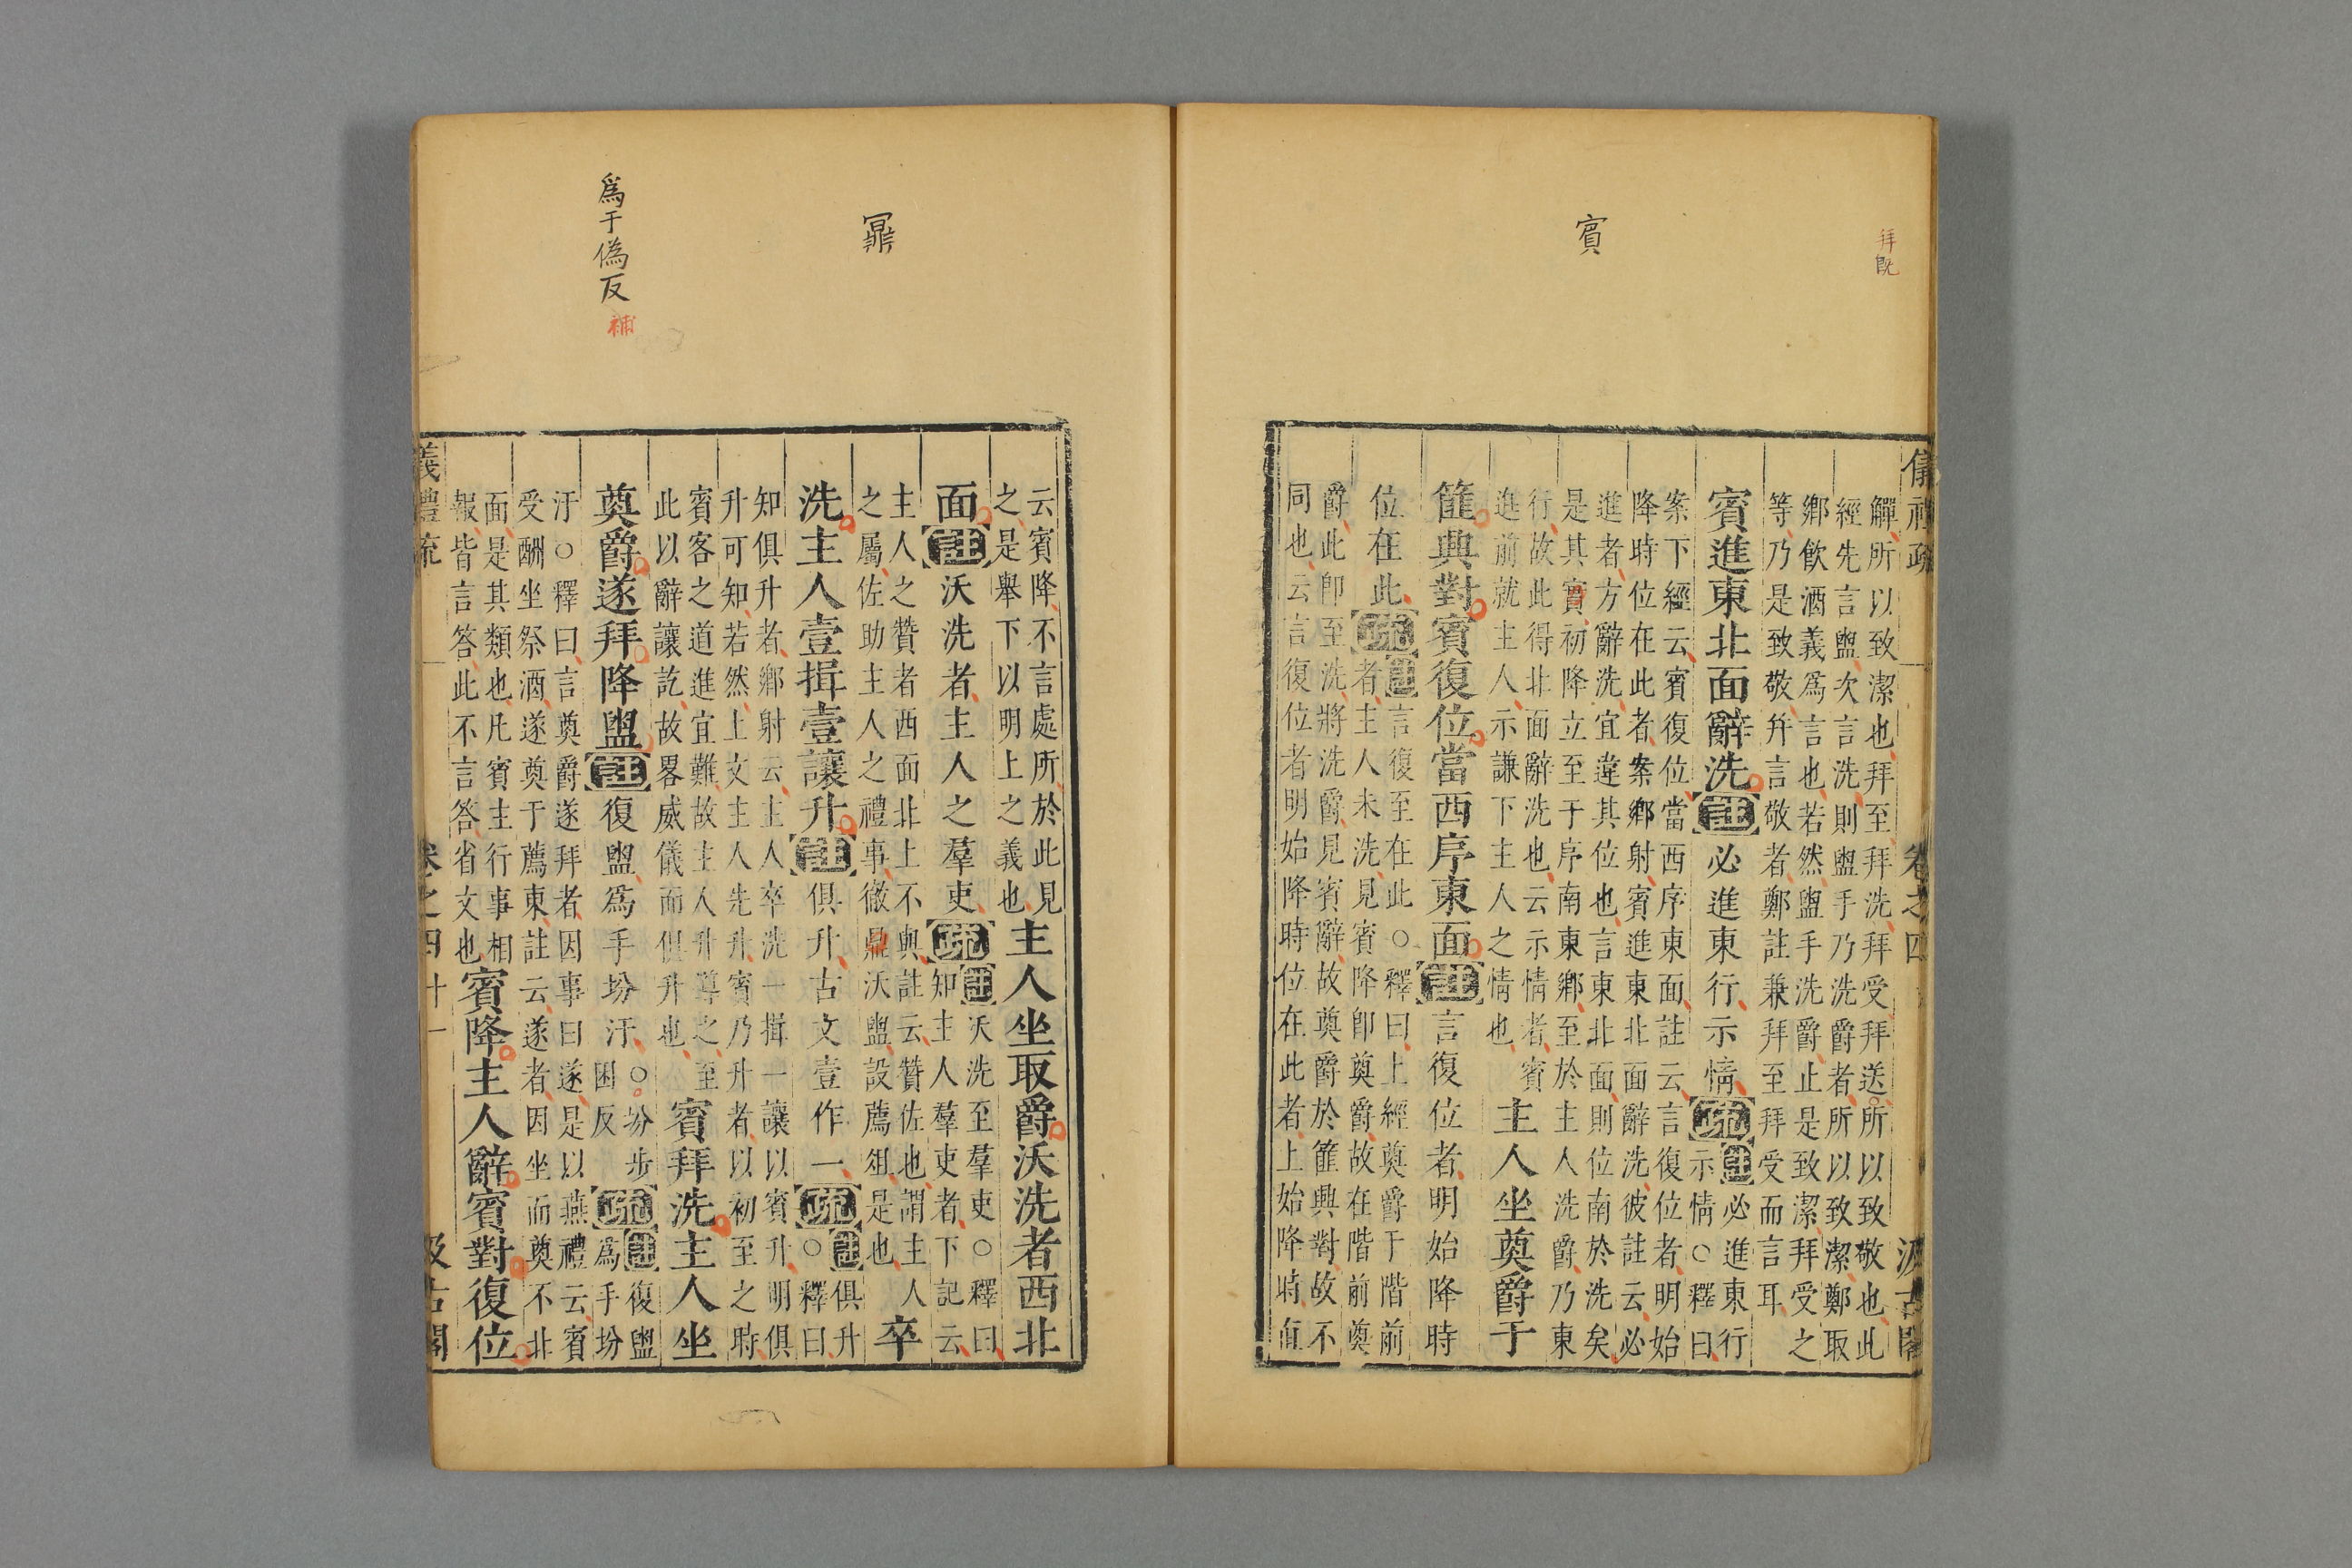 拜既
賓
儀禮疏 卷之四 汲古閣
觶所以致潔也拜至拜洗拜受拜送所以致敬也此
經先言盥次言洗則盥手乃洗爵者所以致潔鄭取
鄉飲酒義爲言也若然盥手洗爵止是致潔拜受之
等乃是致敬幷言敬者鄭註兼拜至拜受而言耳
賓進東北面辭洗註必進東行示情疏註必進東行
示情○釋曰
案下經云賓復位當西序東面註云言復位者明始
降時位在此者案鄉射賓進東北面辭洗彼註云必
進者方辭洗宜違其位也言東北面則位南於洗矣
是其賓初降立至于序南東鄉至於主人洗爵乃東
行故此得北面辭洗也云示情者賓
進前就主人示謙下主人之情也
主人坐奠爵于
篚興對賓復位當西序東面註言復位者明始降時
位在此疏註言復至在此○釋曰上經奠爵于階前
者主人未洗見賓降卽奠爵故在階前奠
爵此卽至洗將洗爵見賓辭故奠爵於篚興對故不
同也云言復位者明始降時位在此者上始降時直
冪
爲于僞反補
云賓降不言處所於此見
之是舉下以明上之義也
主人坐取爵沃洗者西北
面註沃洗者主人之羣吏疏註沃洗至羣吏○釋曰
知主人羣吏者下記云
主人之贊者西面北上不與註云贊佐也謂主人
之屬佐助主人之禮事徹鼎沃盥設薦俎是也
卒
洗主人壹揖壹讓升註俱升古文壹作一疏註俱升
○釋曰
知俱升者鄉射云主人卒洗一揖一讓以賓升明俱
升可知若然上文主人先升賓乃升者以初至之時
賓客之道進宜難故主人升導之至
此以辭讓訖故畧威儀而俱升也
賓拜洗主人坐
奠爵遂拜降盥註復盥爲手坋汙○坋步
困反疏註復盥
爲手坋
汙○釋曰言奠爵遂拜者因事曰遂是以燕禮云賓
受酬坐祭酒遂奠于薦東註云遂者因坐而奠不北
面是其類也凡賓主行事相
報皆言答此不言答省文也
賓降主人辭賓對復位
儀禮疏 卷之四 十一 汲古閣